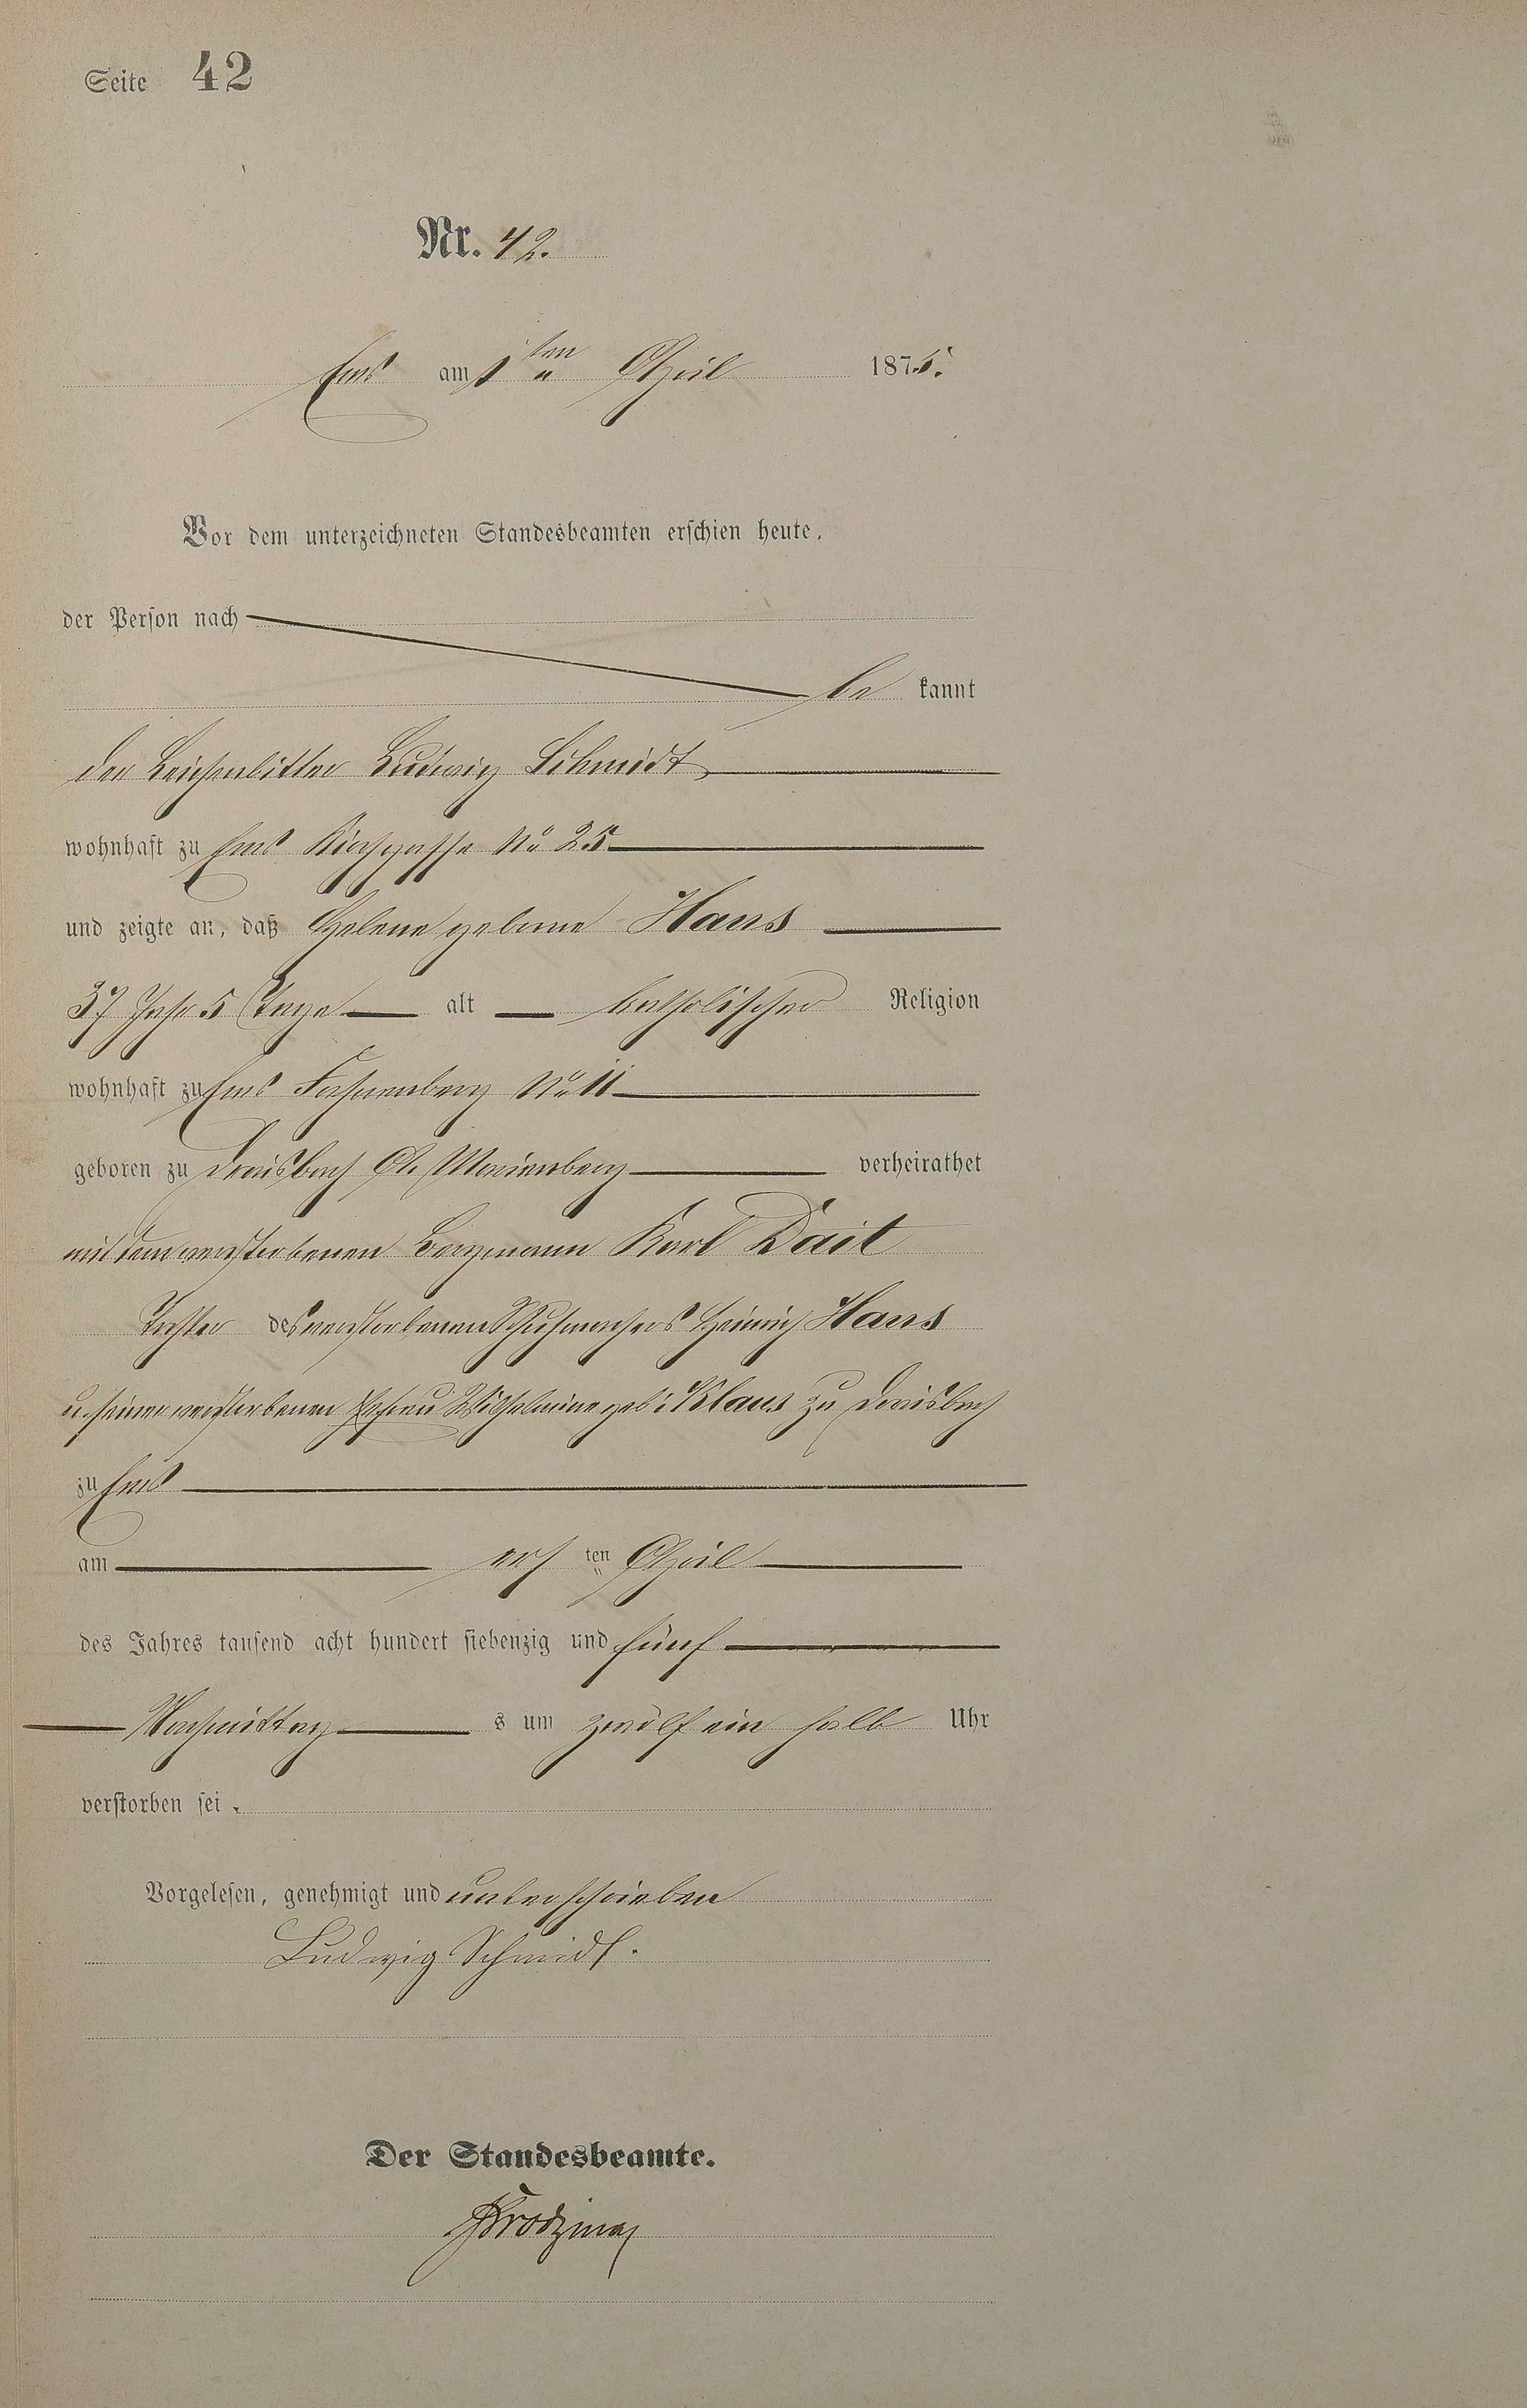 Seite 42
Nr. 42.
Ems am 1ten April 1875.
Vor dem unterzeichneten Standesbeamten erschien heute,
der Person nach
be kannt
der Leichenbitter Ludwig Schmidt
wohnhaft zu Ems Kirchgasse No 25
und zeigte an, daß Helene geborne Haus
37 Jahr 5 Tage alt katholischer Religion
wohnhaft zu Ems No 11
geboren zu Dreisbach A. Marienberg verheirathet
mit dem verstorbenen Bergmann Karl Dait
Tochter des verstorbenen Schuhmachers Heinrich Haus
u. seiner verstorbenen Ehefrau Wilhelmine geb: Klaus zu Dreisbach
zu Ems
am ers ten April
des Jahres tausend acht hundert siebenzig und fünf
Nachmittag s um zwölf ein halb Uhr
verstorben sei.
Vorgelesen, genehmigt und unterschrieben
Ludwig Schmidt.
Der Standesbeamte.